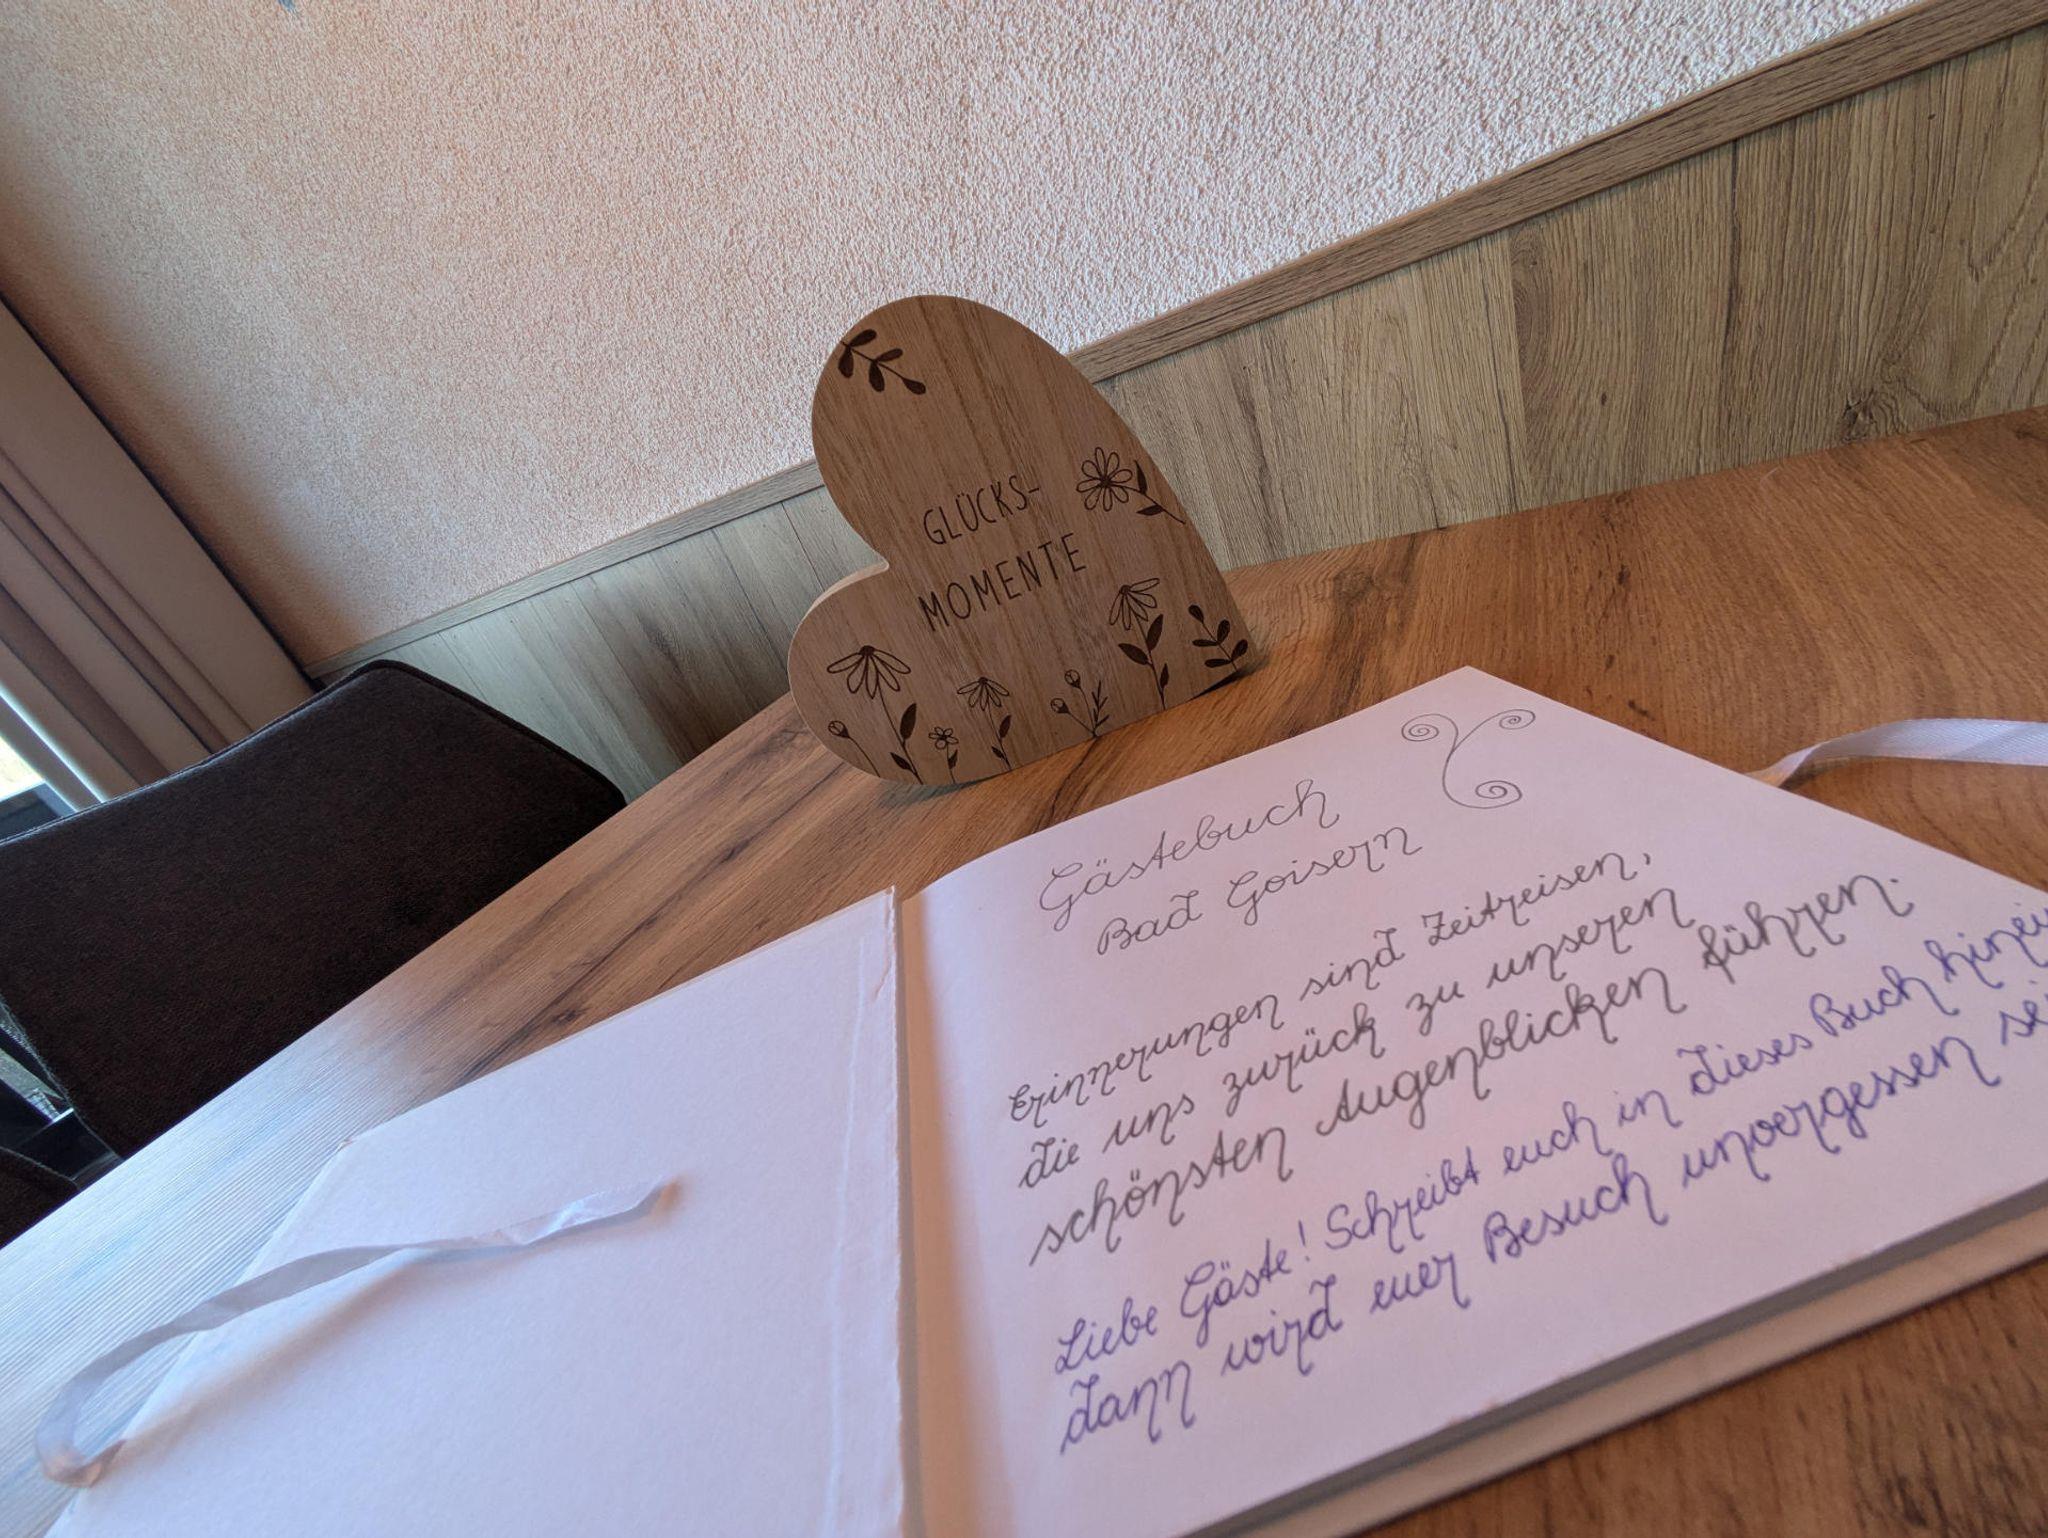 GLÜCKS-
MOMENTE
Gästebuch
Bad Goisern
Erinnerungen sind Zeitreisen,
die uns zurück zu unseren
schönsten Augenblicken führen.
Liebe Gäste! Schreibt euch in dieses Buch hinein
dann wird euer Besuch unvergessen